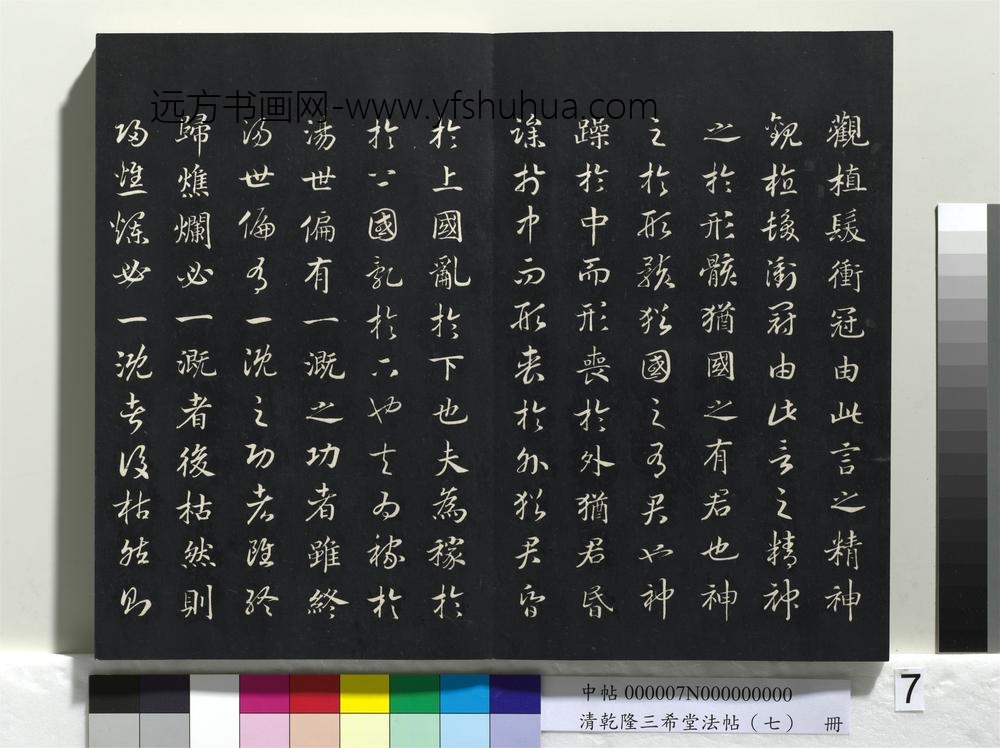 远方书画网-www.yfshuhua.com
觀植髮衝冠由此言之精神
觀植髮衝冠由此言之精神
之於形骸猶國之有君也神
之於形骸猶國之有君也神
躁於中而形喪於外猶君昏
躁於中而形喪於外猶君昏
於上國亂於下也夫為稼於
於上國亂於下也夫為稼於
湯世偏有一溉之功者雖終
湯世偏有一溉之功者雖終
歸燋爛必一溉者後枯然則
歸燋爛必一溉者後枯然則
中帖 000007N000000000
清乾隆三希堂法帖（七） 冊
7